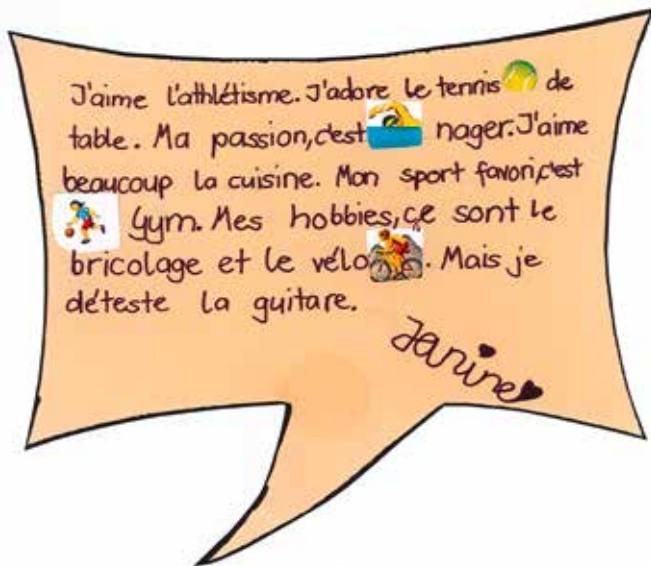 J'aime l'athlétisme. J'adore le tennis de
table. Ma passion, c'est nager. J'aime
beaucoup la cuisine. Mon sport favori, c'est
Gym. Mes hobbies, ce sont le
bricolage et le vélo. Mais je
déteste la guitare.
Janine